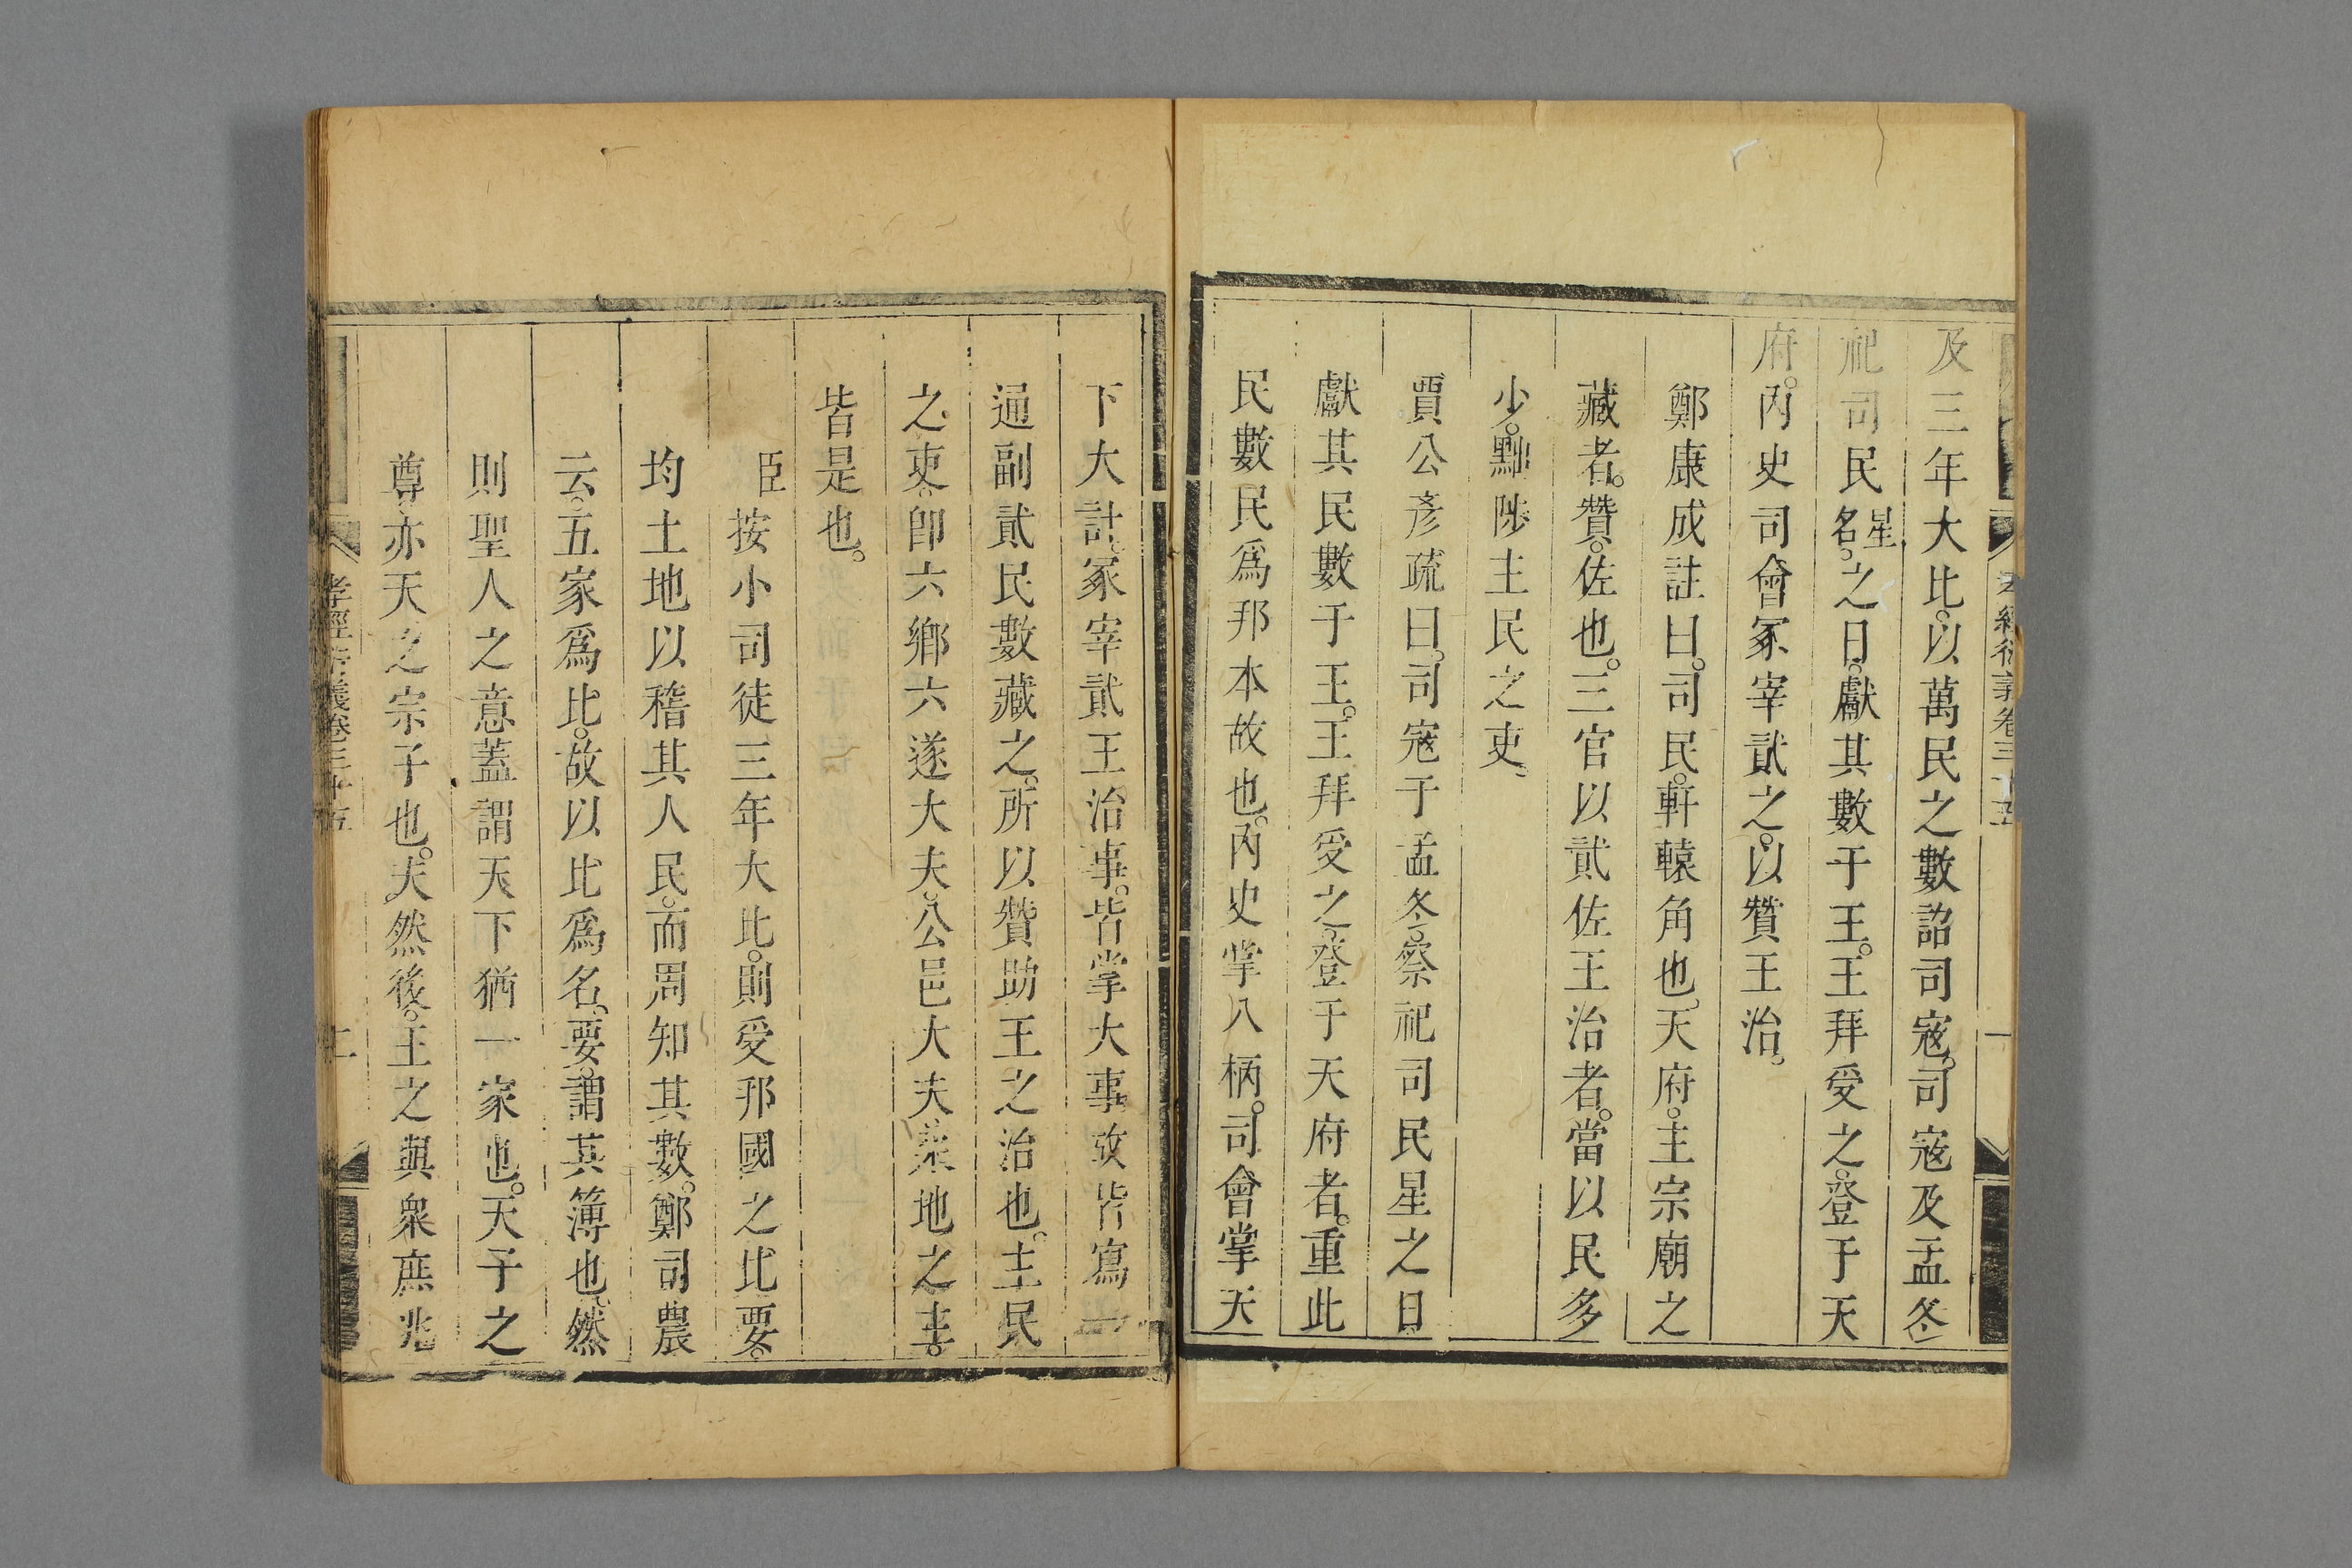 及三年大比。以萬民之數詔司寇。司寇及孟冬
祀司民星名。之日。獻其數于王。王拜受之。登于天
府。內史司會冢宰貳之。以贊王治。
鄭康成註曰。司民。軒轅角也。天府。主宗廟之
藏者。贊。佐也。三官以貳佐王治者。當以民多
少。黜陟主民之吏。
賈公彥疏曰。司寇于孟冬。祭祀司民星之日
獻其民數于王。王拜受之。登于天府者。重此
民數民爲邦本故也。內史掌八柄。司會掌天
下大計。冢宰貳王治事。皆掌大事故皆寫一
通副貳民數藏之。所以贊助王之治也。主民
之吏。卽六鄉六遂大夫。公邑大夫采地之主。
皆是也。
臣按小司徒三年大比。則受邦國之比要。
均土地以稽其人民。而周知其數。鄭司農
云。五家爲比。故以比爲名。要。謂其簿也。然
則聖人之意蓋謂天下猶一家也。天子之
尊亦天之宗子也。夫然後。王之與衆庶兆
孝經衍義卷三十五